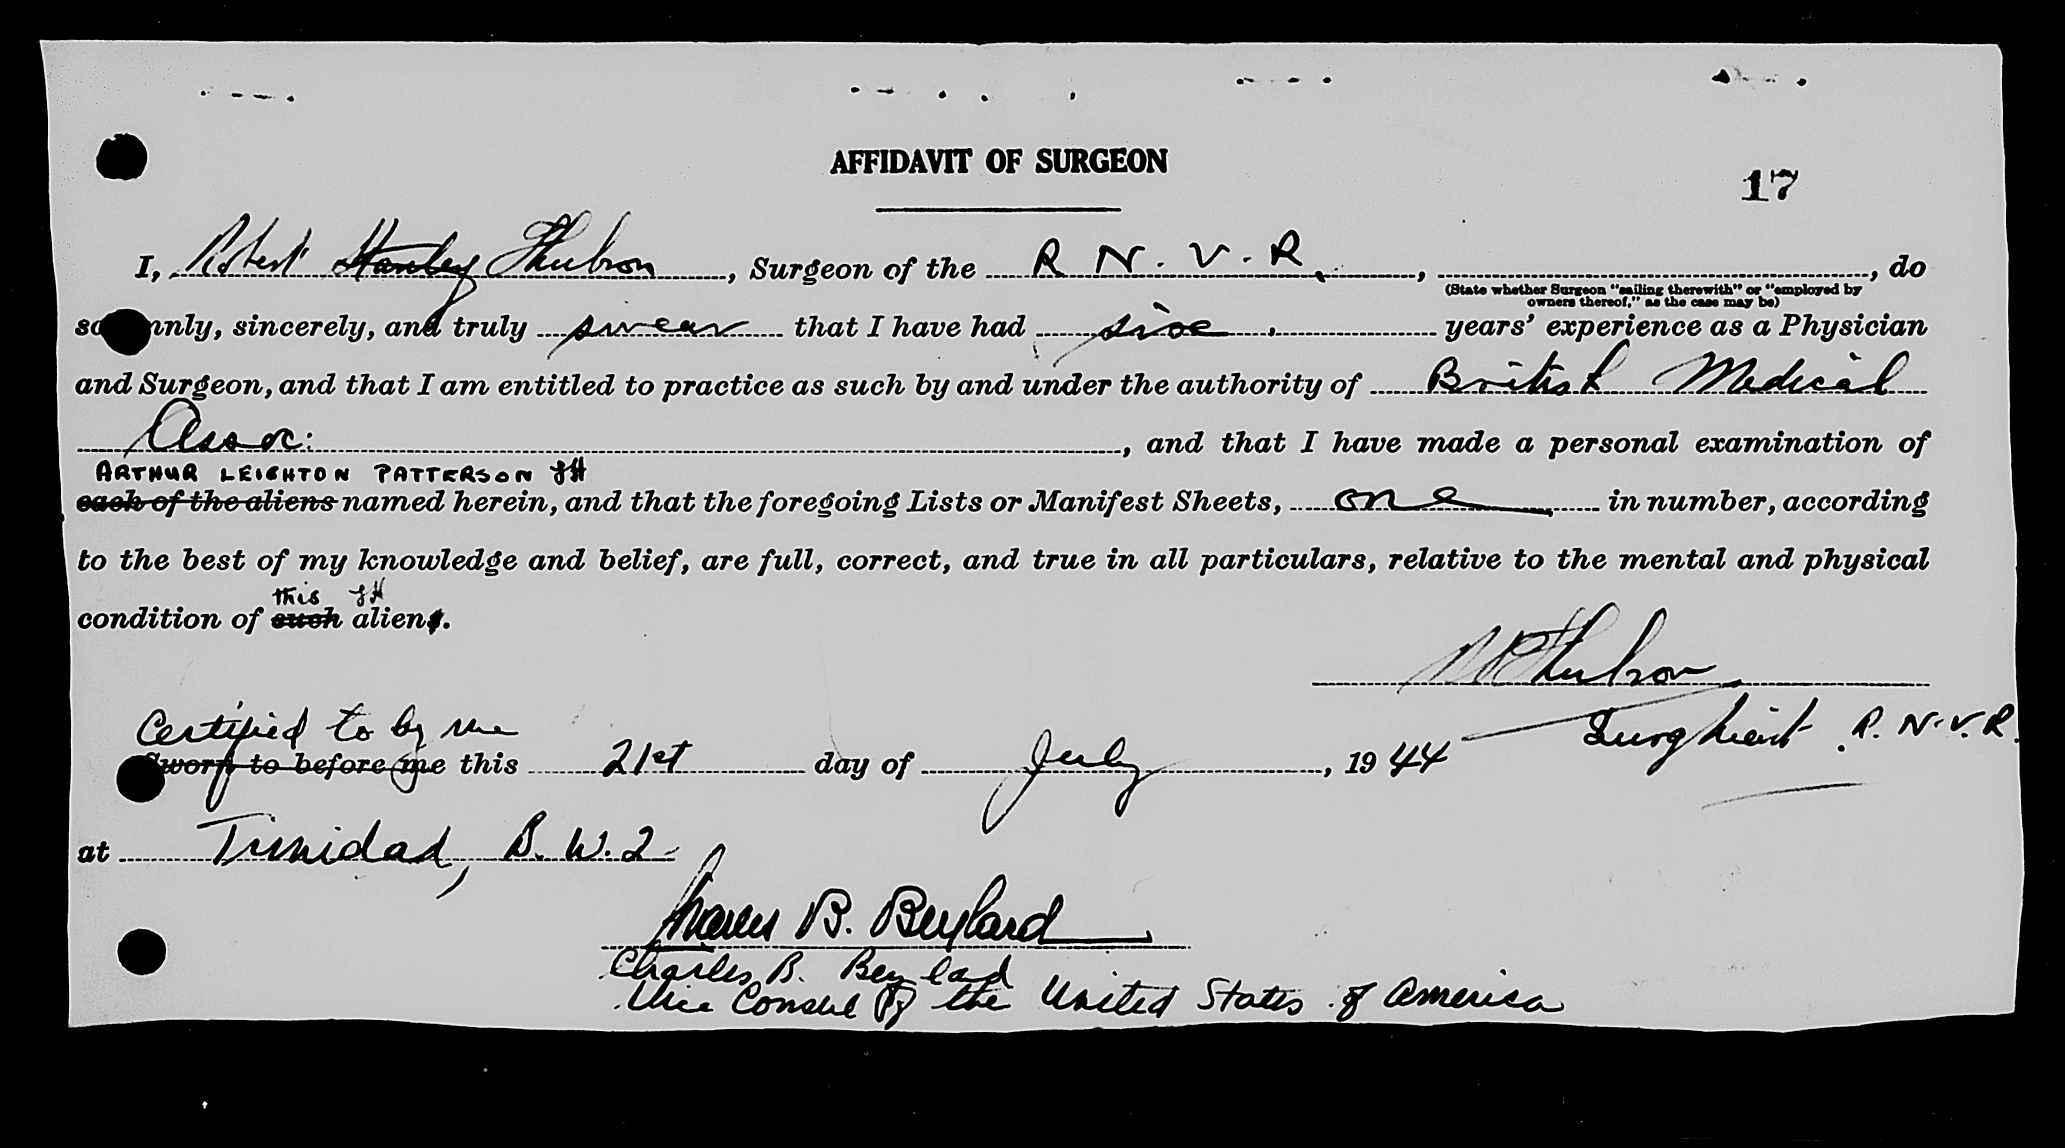 AFFIDAVIT OF SURGEON
17
I, Robert Stanley Thubron, Surgeon of the R. N. V. R., do
(State whether Surgeon "sailing therewith" or "employed by
owners thereof," as the case may be)
solemnly, sincerely, and truly swear that I have had six years' experience as a Physician
and Surgeon, and that I am entitled to practice as such by and under the authority of British Medical
Assoc:, and that I have made a personal examination of
ARTHUR LEIGHTON PATTERSON
each of the aliens named herein, and that the foregoing Lists or Manifest Sheets, one in number, according
to the best of my knowledge and belief, are full, correct, and true in all particulars, relative to the mental and physical
this
condition of such aliens.
Thubron
Surg Lieut. R. N. V. R.
Certified to by me
Sworn to before me this 21st day of July, 1944
at Trinidad, B. W. I.
Charles B. Beylard
Charles B. Beylard
Vice Consul of the United States of America